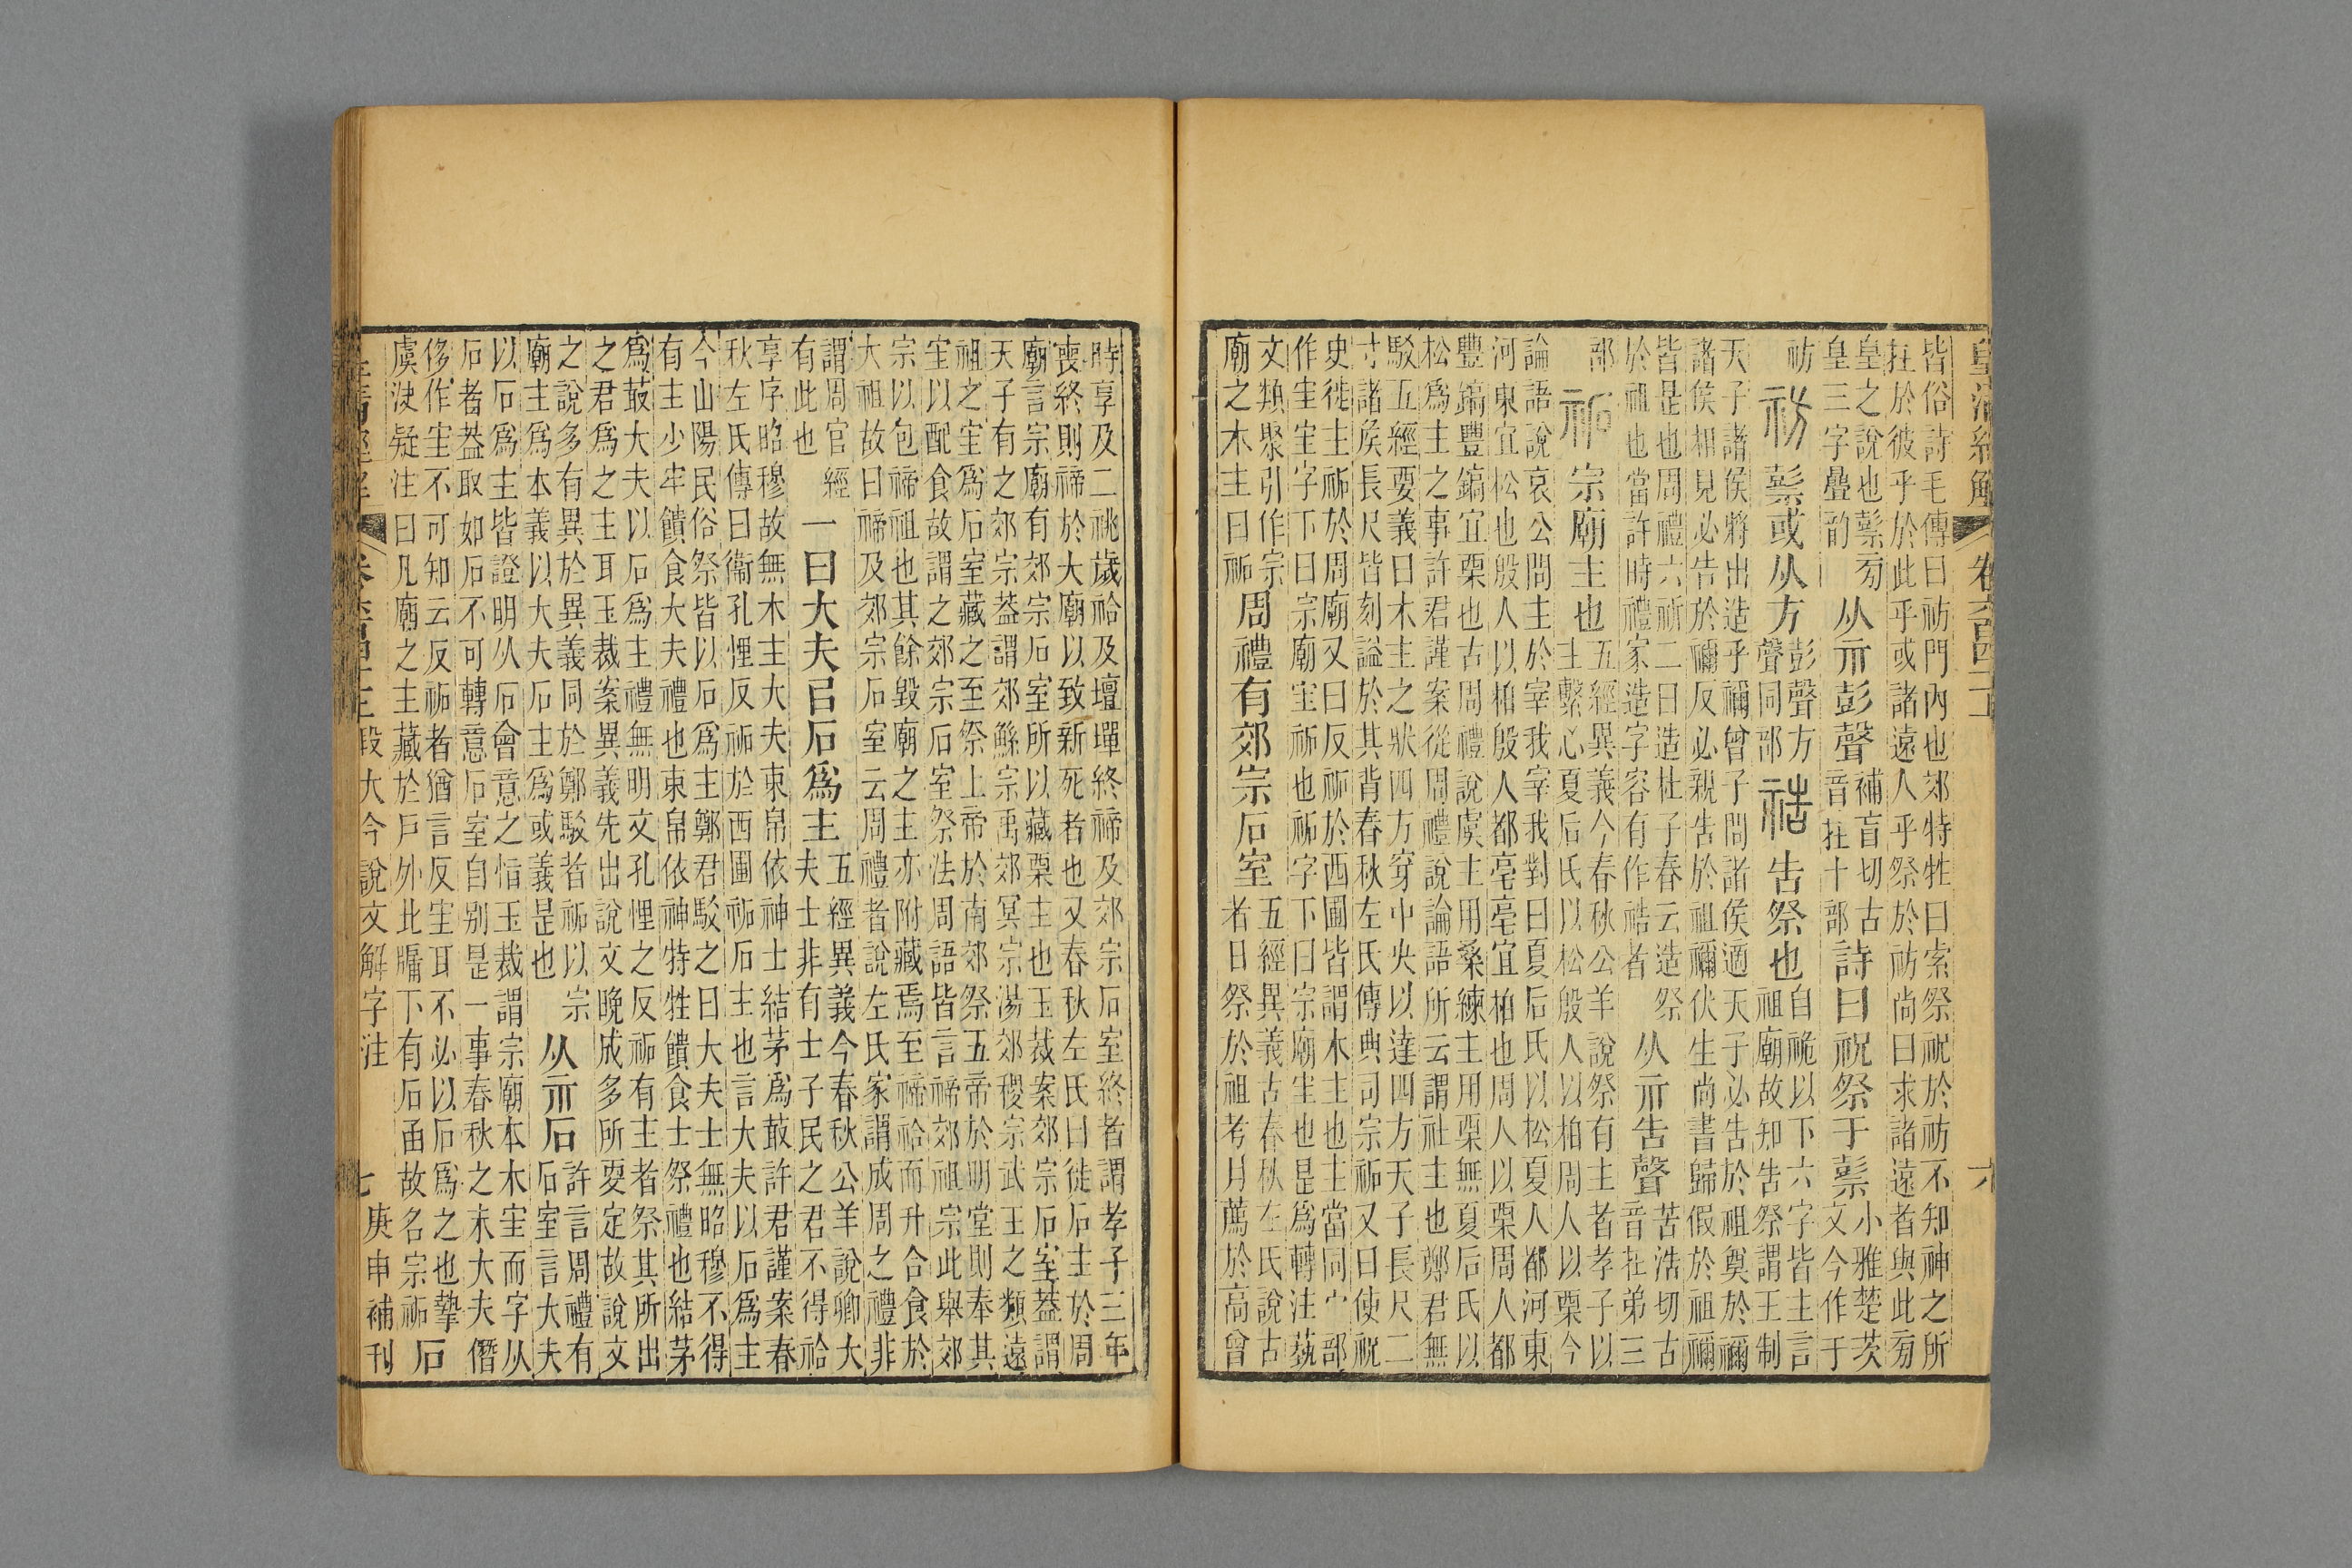 皇清經解
六
皆俗詩毛傳曰祊門內也郊特牲曰索祭祝於祊不知神之所
在於彼乎於此乎或諸遠人乎祭於祊尚曰求諸遠者與此㫄
皇之說也𥛱㫄
皇三字疊韵
从示彭聲
補盲切古
音在十部
詩曰祝祭于𥛱
小雅楚茨
文今作于
祊
祊
𥛱或从方
彭聲方
聲同部
祰
告祭也
自祪以下六字皆主言
祖廟故知告祭謂王制
天子諸侯將出造乎禰曾子問諸侯適天子必告於祖奠於禰
諸侯相見必告於禰反必親告於祖禰伏生尚書歸假於祖禰
皆是也周禮六祈二曰造杜子春云造祭
於祖也當許時禮家造字容有作祰者
从示告聲
苦浩切古
音在弟三
部
祏
宗廟主也
五經異義今春秋公羊說祭有主者孝子以
主繫心夏后氏以松殷人以柏周人以栗今
論語說哀公問主於宰我宰我對曰夏后氏以松夏人都河東
河東宜松也殷人以柏殷人都亳亳宜柏也周人以栗周人都
豐鎬豐鎬宜栗也古周禮說虞主用桑練主用栗無夏后氏以
松爲主之事許君謹案從周禮說論語所云謂社主也鄭君無
駁五經要義曰木主之狀四方穿中央以達四方天子長尺二
寸諸侯長尺皆刻謚於其背春秋左氏傳典司宗祏又曰使祝
史徙主祏於周廟又曰反祏於西圃皆謂木主也主當同宀部
作宔宔字下曰宗廟宔祏也祏字下曰宗廟宔也是爲轉注蓺
文類聚引作宗
廟之木主曰祏
周禮有郊宗石室
五經異義古春秋左氏說古
者日祭於祖考月薦於高曾
時享及二祧歲祫及壇墠終禘及郊宗石室終者謂孝子三年
喪終則禘於大廟以致新死者也又春秋左氏曰徙石主於周
廟言宗廟有郊宗石室所以藏栗主也玉裁案郊宗石室蓋謂
天子有之郊宗蓋謂郊鯀宗禹郊冥宗湯郊稷宗武王之類遠
祖之宔爲石室藏之至祭上帝於南郊祭五帝於明堂則奉其
宔以配食故謂之郊宗石室祭法周語皆言禘郊祖宗此舉郊
宗以包禘祖也其餘毀廟之主亦附藏焉至禘祫而升合食於
大祖故曰禘及郊宗石室云周禮者說左氏家謂成周之禮非
謂周官經
有此也
一曰大夫㠯石爲主
五經異義今春秋公羊說卿大
夫士非有士子民之君不得祫
享序昭穆故無木主大夫束帛依神士結茅爲菆許君謹案春
秋左氏傳曰衞孔悝反祏於西圃祏石主也言大夫以石爲主
今山陽民俗祭皆以石爲主鄭君駁之曰大夫士無昭穆不得
有主少牢饋食大夫禮也束帛依神特牲饋食士祭禮也結茅
爲菆大夫以石爲主禮無明文孔悝之反祏有主者祭其所出
之君爲之主耳玉裁案異義先出說文晚成多所叓定故說文
之說多有異於異義同於鄭駁者祏以宗
廟主爲本義以大夫石主爲或義是也
从示石
許言周禮有
石室言大夫
以石爲主皆證明从石會意之恉玉裁謂宗廟本木宔而字从
石者蓋取如石不可轉意石室自別是一事春秋之末大夫僭
侈作宔不可知云反祏者猶言反宔耳不必以石爲之也摯
虞決疑注曰凡廟之主藏於戶外北牖下有石函故名宗祏
石
段大令說文解字注
七
庚申補刊